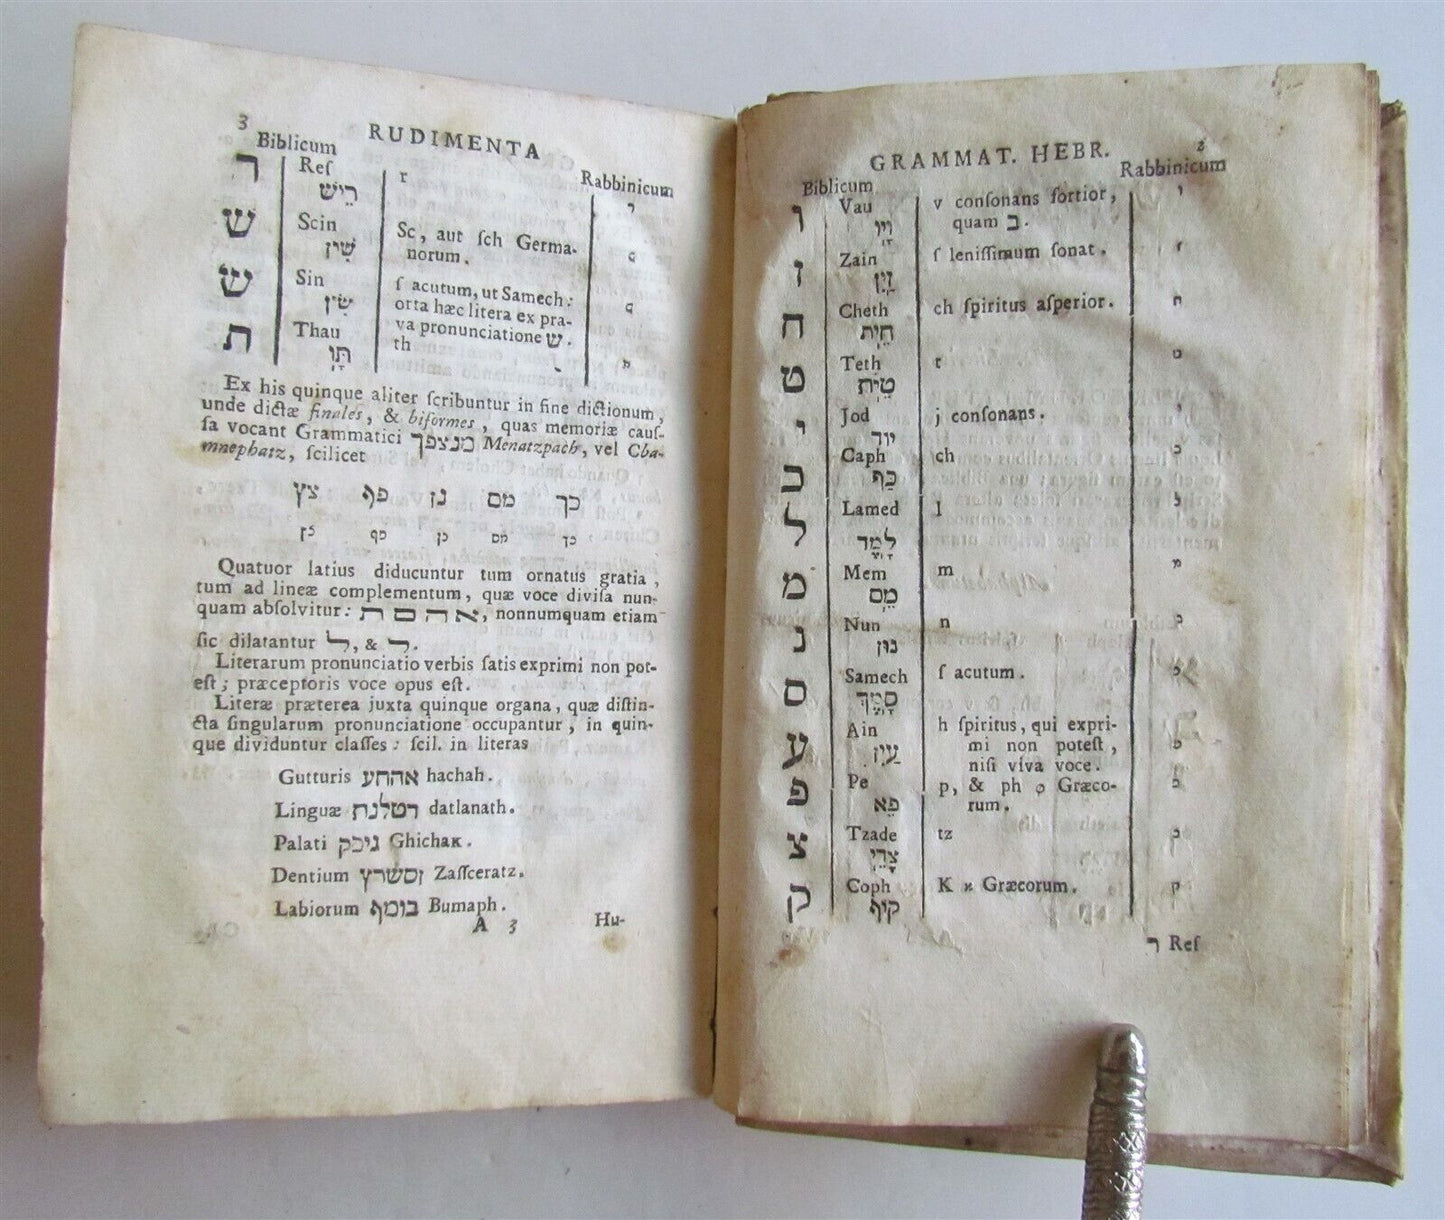 3 RUDIMENTA
Biblicum Rabbinicum
ר Reſ r ר
רֵישׁ
שׁ Scin Sc, aut ſch Germa-
שִׁין norum.
שׂ Sin ſ acutum, ut Samech:
שִׂין orta hæc litera ex pra-
va pronunciatione שׁ.
ת Thau th ת
תָּו
Ex his quinque aliter ſcribuntur in fine dictionum,
unde dictæ finales, & biformes, quas memoriæ cauſ-
ſa vocant Grammatici מנצפך Menatzpach, vel Cha-
mnephatz, ſcilicet
צץ פף נן מם כך
Quatuor latius diducuntur tum ornatus gratia,
tum ad lineæ complementum, quæ voce diviſa nun-
quam abſolvitur: א ה ם ת, nonnumquam etiam
ſic dilatantur ל, & ר.
Literarum pronunciatio verbis ſatis exprimi non pot-
eſt; præceptoris voce opus eſt.
Literæ præterea juxta quinque organa, quæ diſtin-
cta ſingularum pronunciatione occupantur, in quin-
que dividuntur claſſes: ſcil. in literas
Gutturis אהחע hachah.
Linguæ דטלנת datlanath.
Palati גיכק Ghichak.
Dentium זסשרץ Zaſſceratz.
Labiorum בומף Bumaph.
A 3 Hu-
GRAMMAT. HEBR.
Biblicum Rabbinicum
ו Vau v conſonans fortior, ו
וָיו quam ב.
ז Zain ſ leniſſimum ſonat. ז
זַיִן
ח Cheth ch ſpiritus aſperior. ח
חֵית
ט Teth t ט
טֵית
י Jod j conſonans. י
יוד
כ Caph ch כ
כַּף
ל Lamed l ל
לָמֶד
מ Mem m מ
מֵם
נ Nun n נ
נוּן
ס Samech ſ acutum.
סָמֶך
ע Ain h ſpiritus, qui expri-
עַיִן mi non poteſt,
niſi viva voce.
פ Pe p, & ph φ Græco-
פֵּא rum.
צ Tzade tz
צָדֵי
ק Coph K ϰ Græcorum. ק
קוֹף
ר Reſ